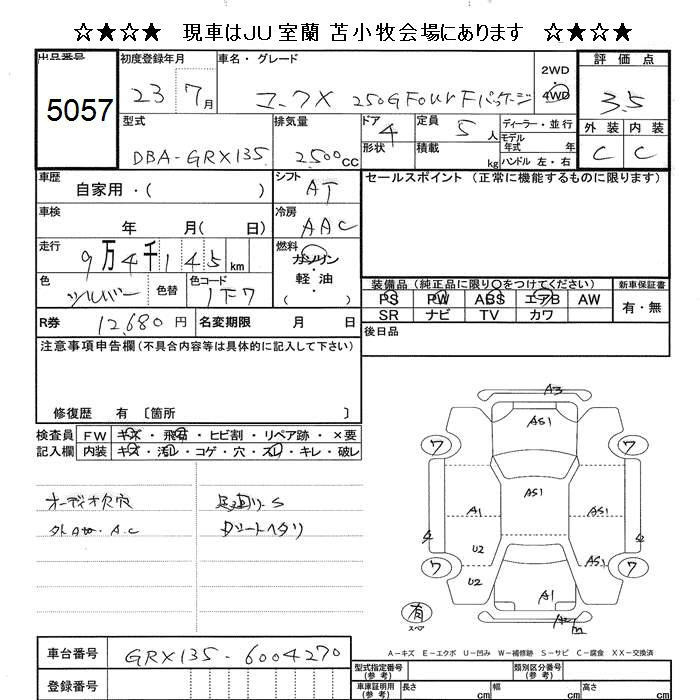 ☆★☆★ 現車はJU室蘭 苫小牧会場にあります ☆★☆★
出品番号 初度登録年月 車名・グレード 2WD 評価点
5057 23 7月 マークX 250G Four Fパッケージ 4WD 3.5
型式 排気量 ドア 4 定員 5人 ディーラー・並行 外装 内装
モデル年式 年
DBA-GRX135 2500cc 形状 積載 kg ハンドル 左・右 C C
車歴 自家用・( ) シフト AT セールスポイント (正常に機能するものに限ります)
車検 年 月( 日) 冷房 AAC
走行 9万4千145km 燃料 ガソリン・軽油 ( )
色 シルバー 色替 色コード 1F7
装備品 (純正品に限り○をつけてください) 新車保証書
PS PW ABS エアB AW 有・無
SR ナビ TV カワ
R券 12,680円 名変期限 月 日 後日品
注意事項申告欄(不具合内容等は具体的に記入して下さい)
修復歴 有 〔箇所 〕
検査員 FW キズ・飛石・ヒビ割・リペア跡・×要
記入欄 内装 キズ・汚レ・コゲ・穴・スレ・キレ・破レ
オーディオ欠穴 足廻り.S
外Ato. A.C Dシートヘタリ
A3
AS1
ワ ワ
AS1
A1 AS1
U2
ワ U2 AS1 ワ
A1
有
スペア
A-キズ E-エクボ U-凹み W-補修跡 S-サビ C-腐食 XX-交換済
車台番号 GRX135-6004270
型式指定番号(参考) 類別区分番号(参考)
登録番号 車庫証明用(参考) 長さ cm 幅 cm 高さ cm